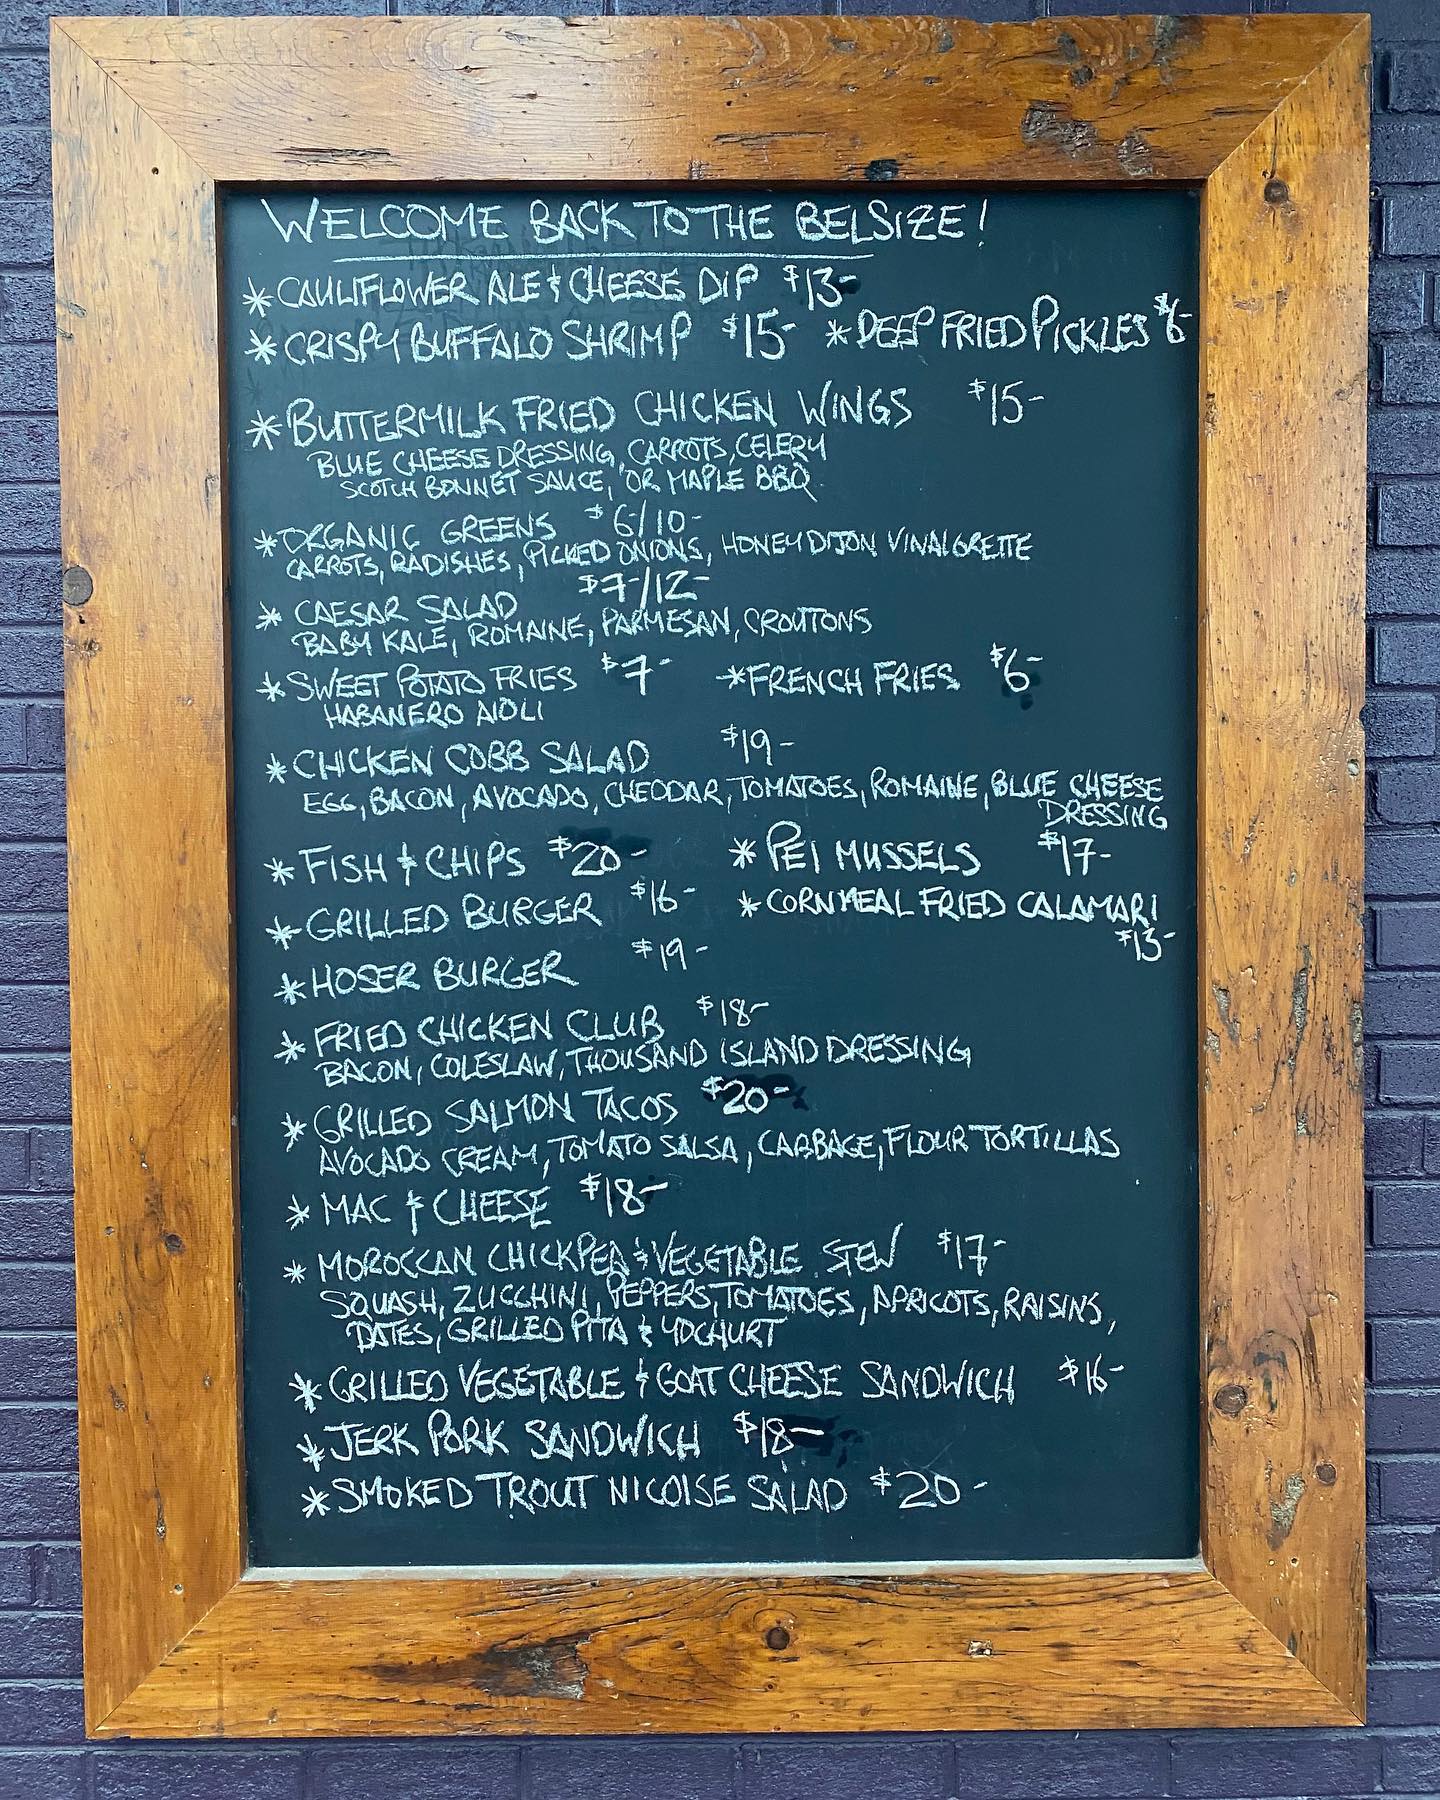 WELCOME BACK TO THE BELSIZE!
* CAULIFLOWER ALE & CHEESE DIP $13-
* CRISPY BUFFALO SHRIMP $15- * DEEP FRIED PICKLES $6-
* BUTTERMILK FRIED CHICKEN WINGS $15-
BLUE CHEESE DRESSING, CARROTS, CELERY
SCOTCH BONNET SAUCE, OR MAPLE BBQ
* ORGANIC GREENS $6/10-
CARROTS, RADISHES, PICKED ONIONS, HONEY DIJON VINAIGRETTE
* CAESAR SALAD $7-/12-
BABY KALE, ROMAINE, PARMESAN, CROUTONS
* SWEET POTATO FRIES $7- * FRENCH FRIES $6-
HABANERO AIOLI
* CHICKEN COBB SALAD $19-
EGG, BACON, AVOCADO, CHEDDAR, TOMATOES, ROMAINE, BLUE CHEESE
DRESSING
* FISH & CHIPS $20- * PEI MUSSELS $17-
* GRILLED BURGER $16- * CORNMEAL FRIED CALAMARI
$13-
* HOSER BURGER $19-
* FRIED CHICKEN CLUB $18-
BACON, COLESLAW, THOUSAND ISLAND DRESSING
* GRILLED SALMON TACOS $20-
AVOCADO CREAM, TOMATO SALSA, CABBAGE, FLOUR TORTILLAS
* MAC & CHEESE $18-
* MOROCCAN CHICKPEA & VEGETABLE STEW $17-
SQUASH, ZUCCHINI, PEPPERS, TOMATOES, APRICOTS, RAISINS,
DATES, GRILLED PITA & YOGHURT
* GRILLED VEGETABLE & GOAT CHEESE SANDWICH $16-
* JERK PORK SANDWICH $18-
* SMOKED TROUT NICOISE SALAD $20-